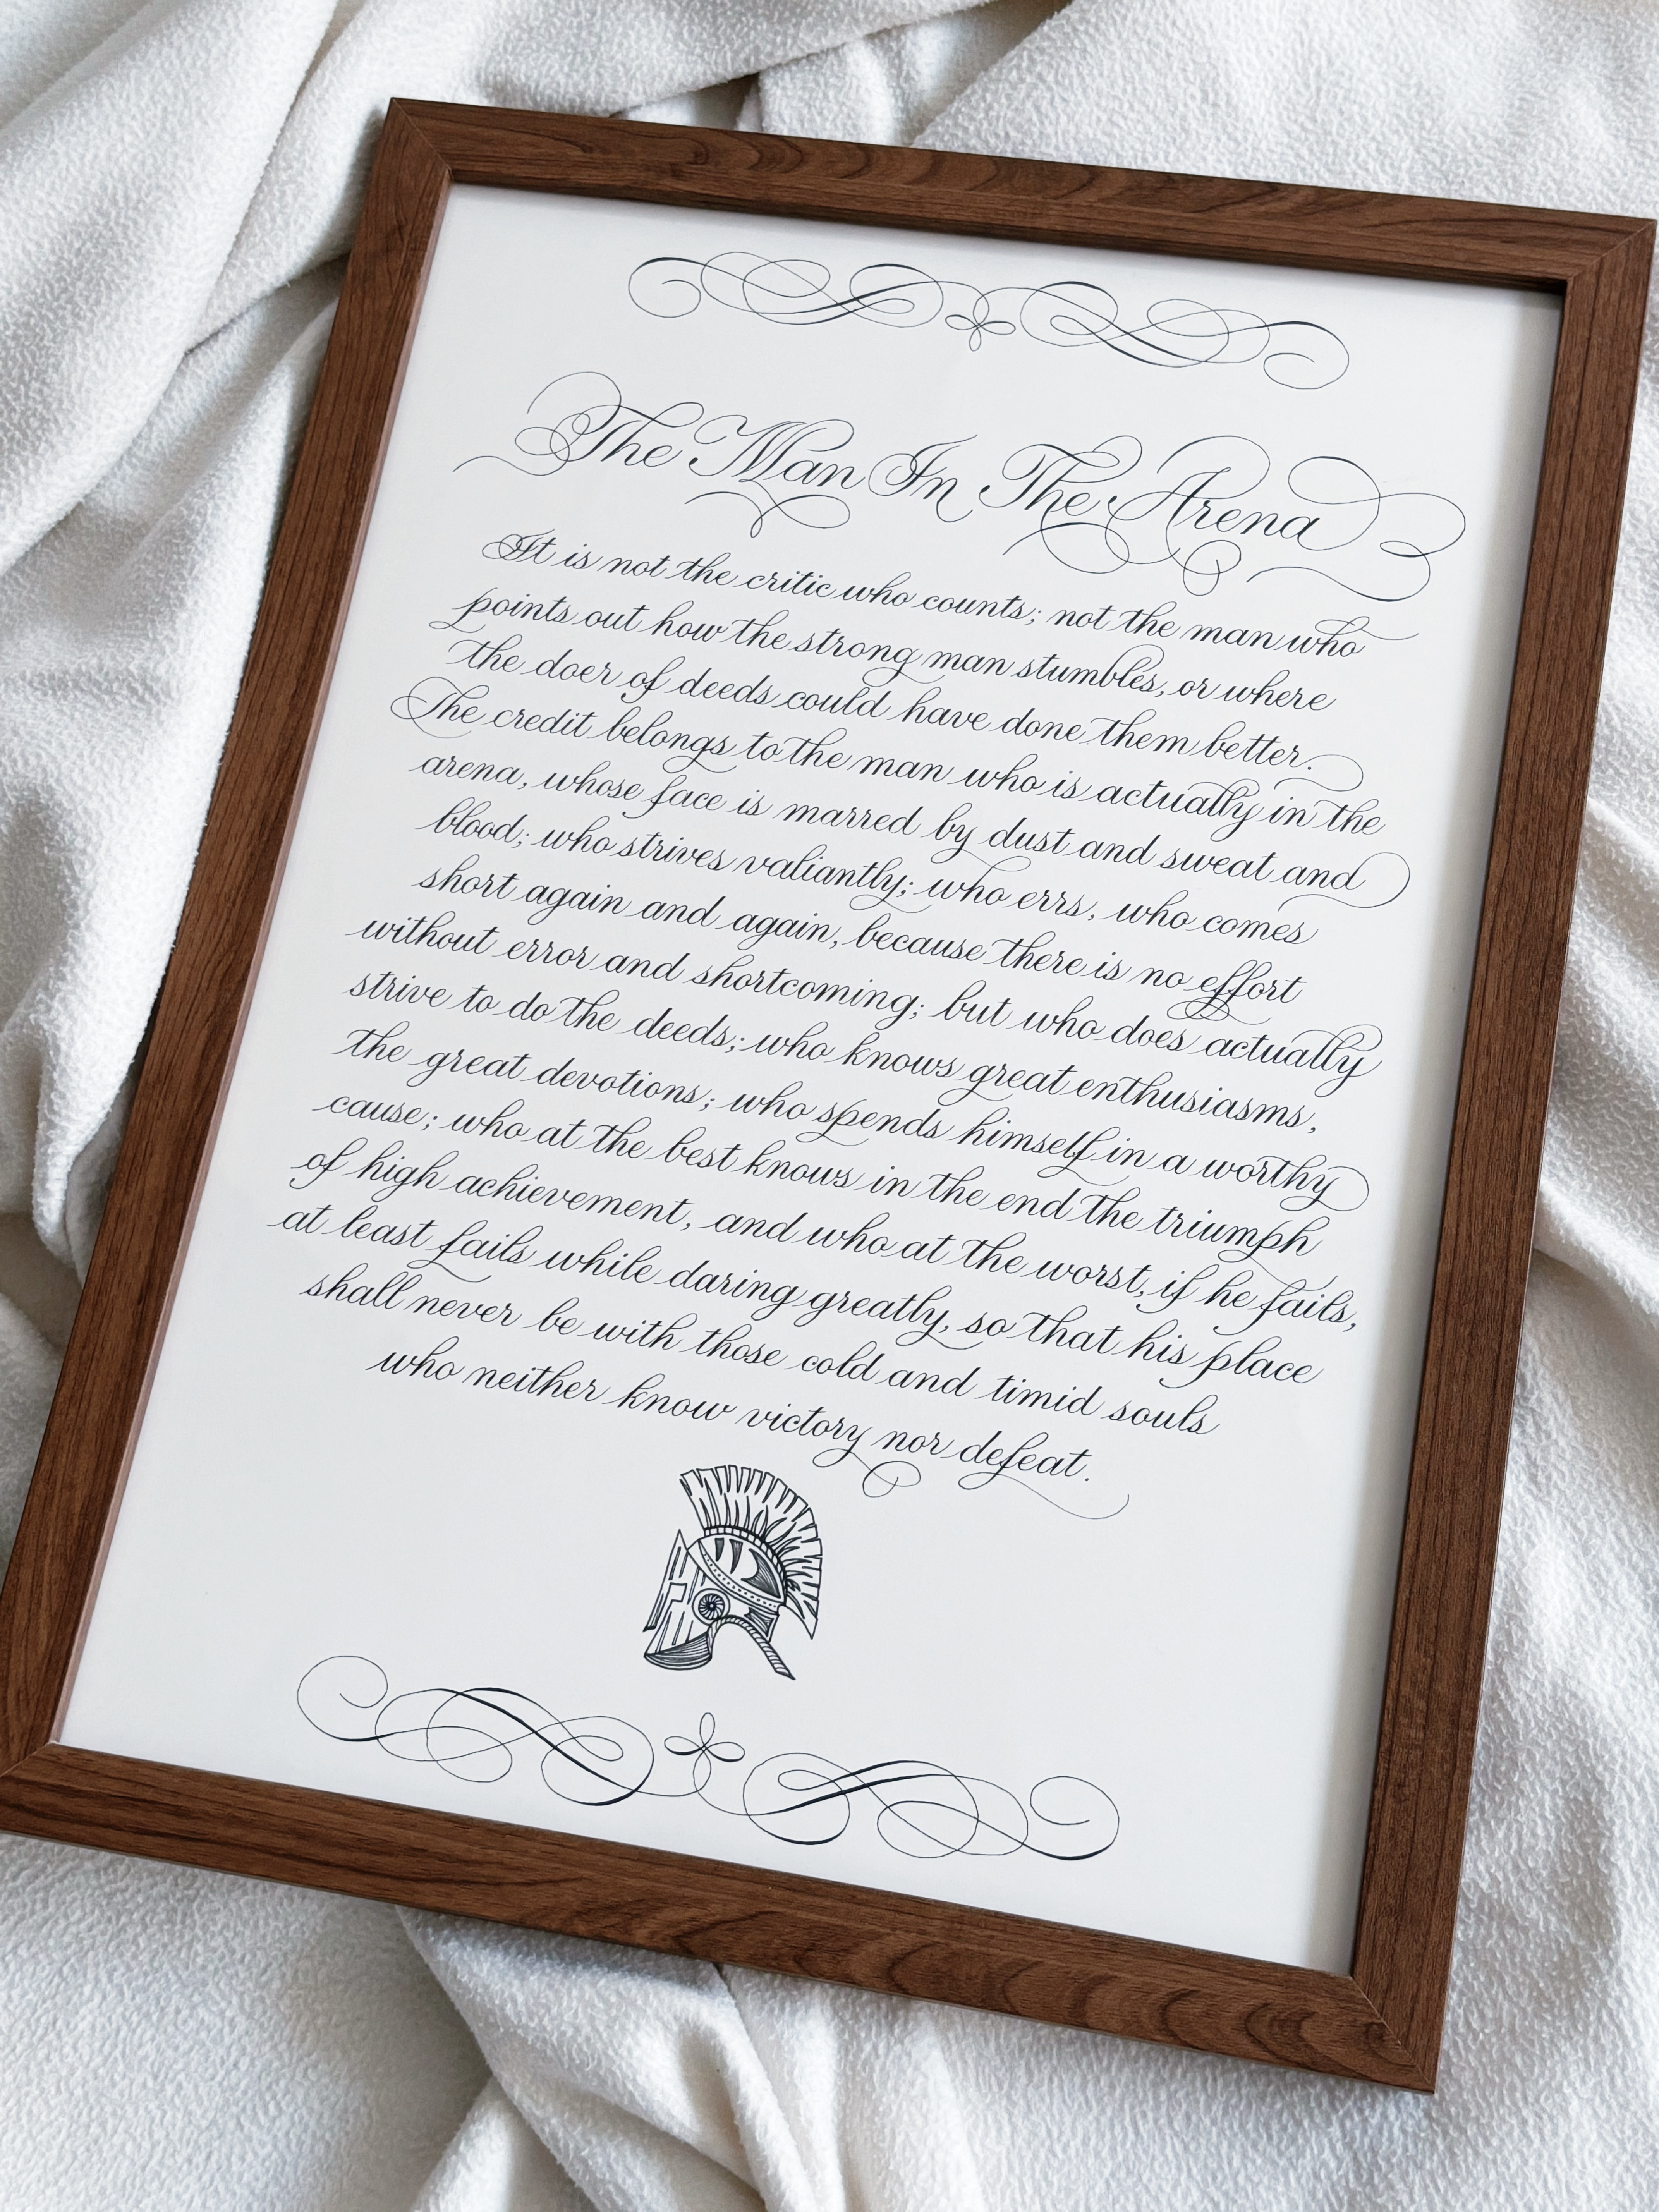 The Man In The Arena
It is not the critic who counts; not the man who
points out how the strong man stumbles, or where
the doer of deeds could have done them better.
The credit belongs to the man who is actually in the
arena, whose face is marred by dust and sweat and
blood; who strives valiantly; who errs, who comes
short again and again, because there is no effort
without error and shortcoming; but who does actually
strive to do the deeds; who knows great enthusiasms,
the great devotions; who spends himself in a worthy
cause; who at the best knows in the end the triumph
of high achievement, and who at the worst, if he fails,
at least fails while daring greatly, so that his place
shall never be with those cold and timid souls
who neither know victory nor defeat.